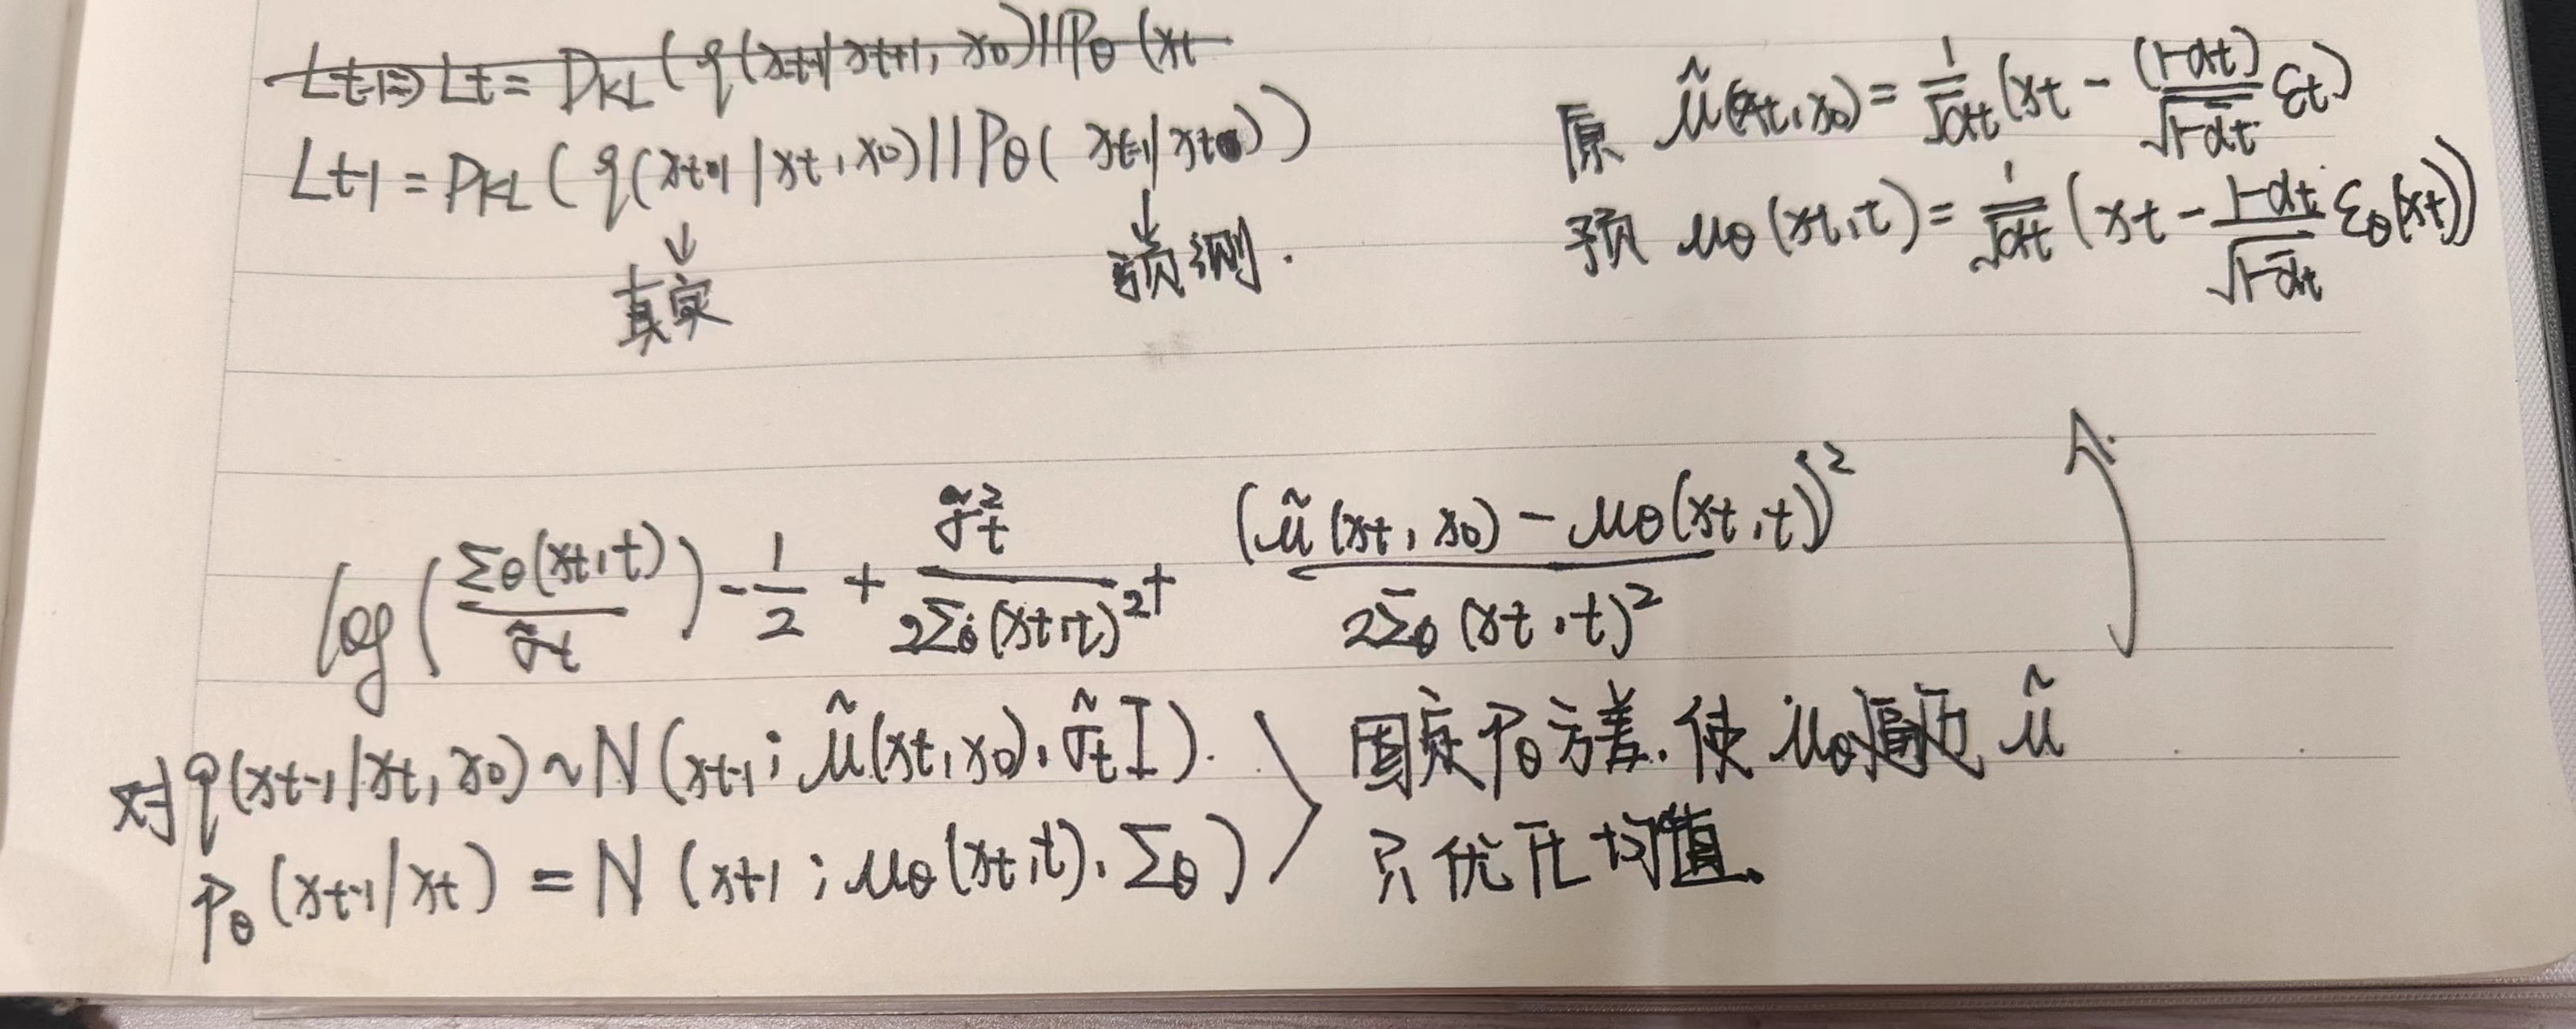 Lt-1⇒ Lt = DKL ( q(xt|xt+1, x0)||Pθ (xt
Lt-1 = DKL ( q(xt-1|xt, x0)||Pθ( xt-1|xt))
↓ ↓
真实 预测.
原 μ̃(xt,x0) = 1/√αt (xt - (1-αt)/√1-ᾱt εt)
预 μθ(xt,t) = 1/√αt (xt - 1-αt/√1-ᾱt εθ(xt))
log( Σθ(xt,t)/σ̃t ) - 1/2 + σ̃t²/2Σθ(xt,t)² + (μ̃(xt, x0) - μθ(xt,t))²/2Σθ(xt,t)²
对q(xt-1|xt, x0) ~ N (xt-1; μ̃(xt,x0), σ̃t I).
Pθ(xt-1|xt) = N (xt-1; μθ(xt,t), Σθ)
固定Pθ方差.使μθ逼近 μ̃
只优化均值.